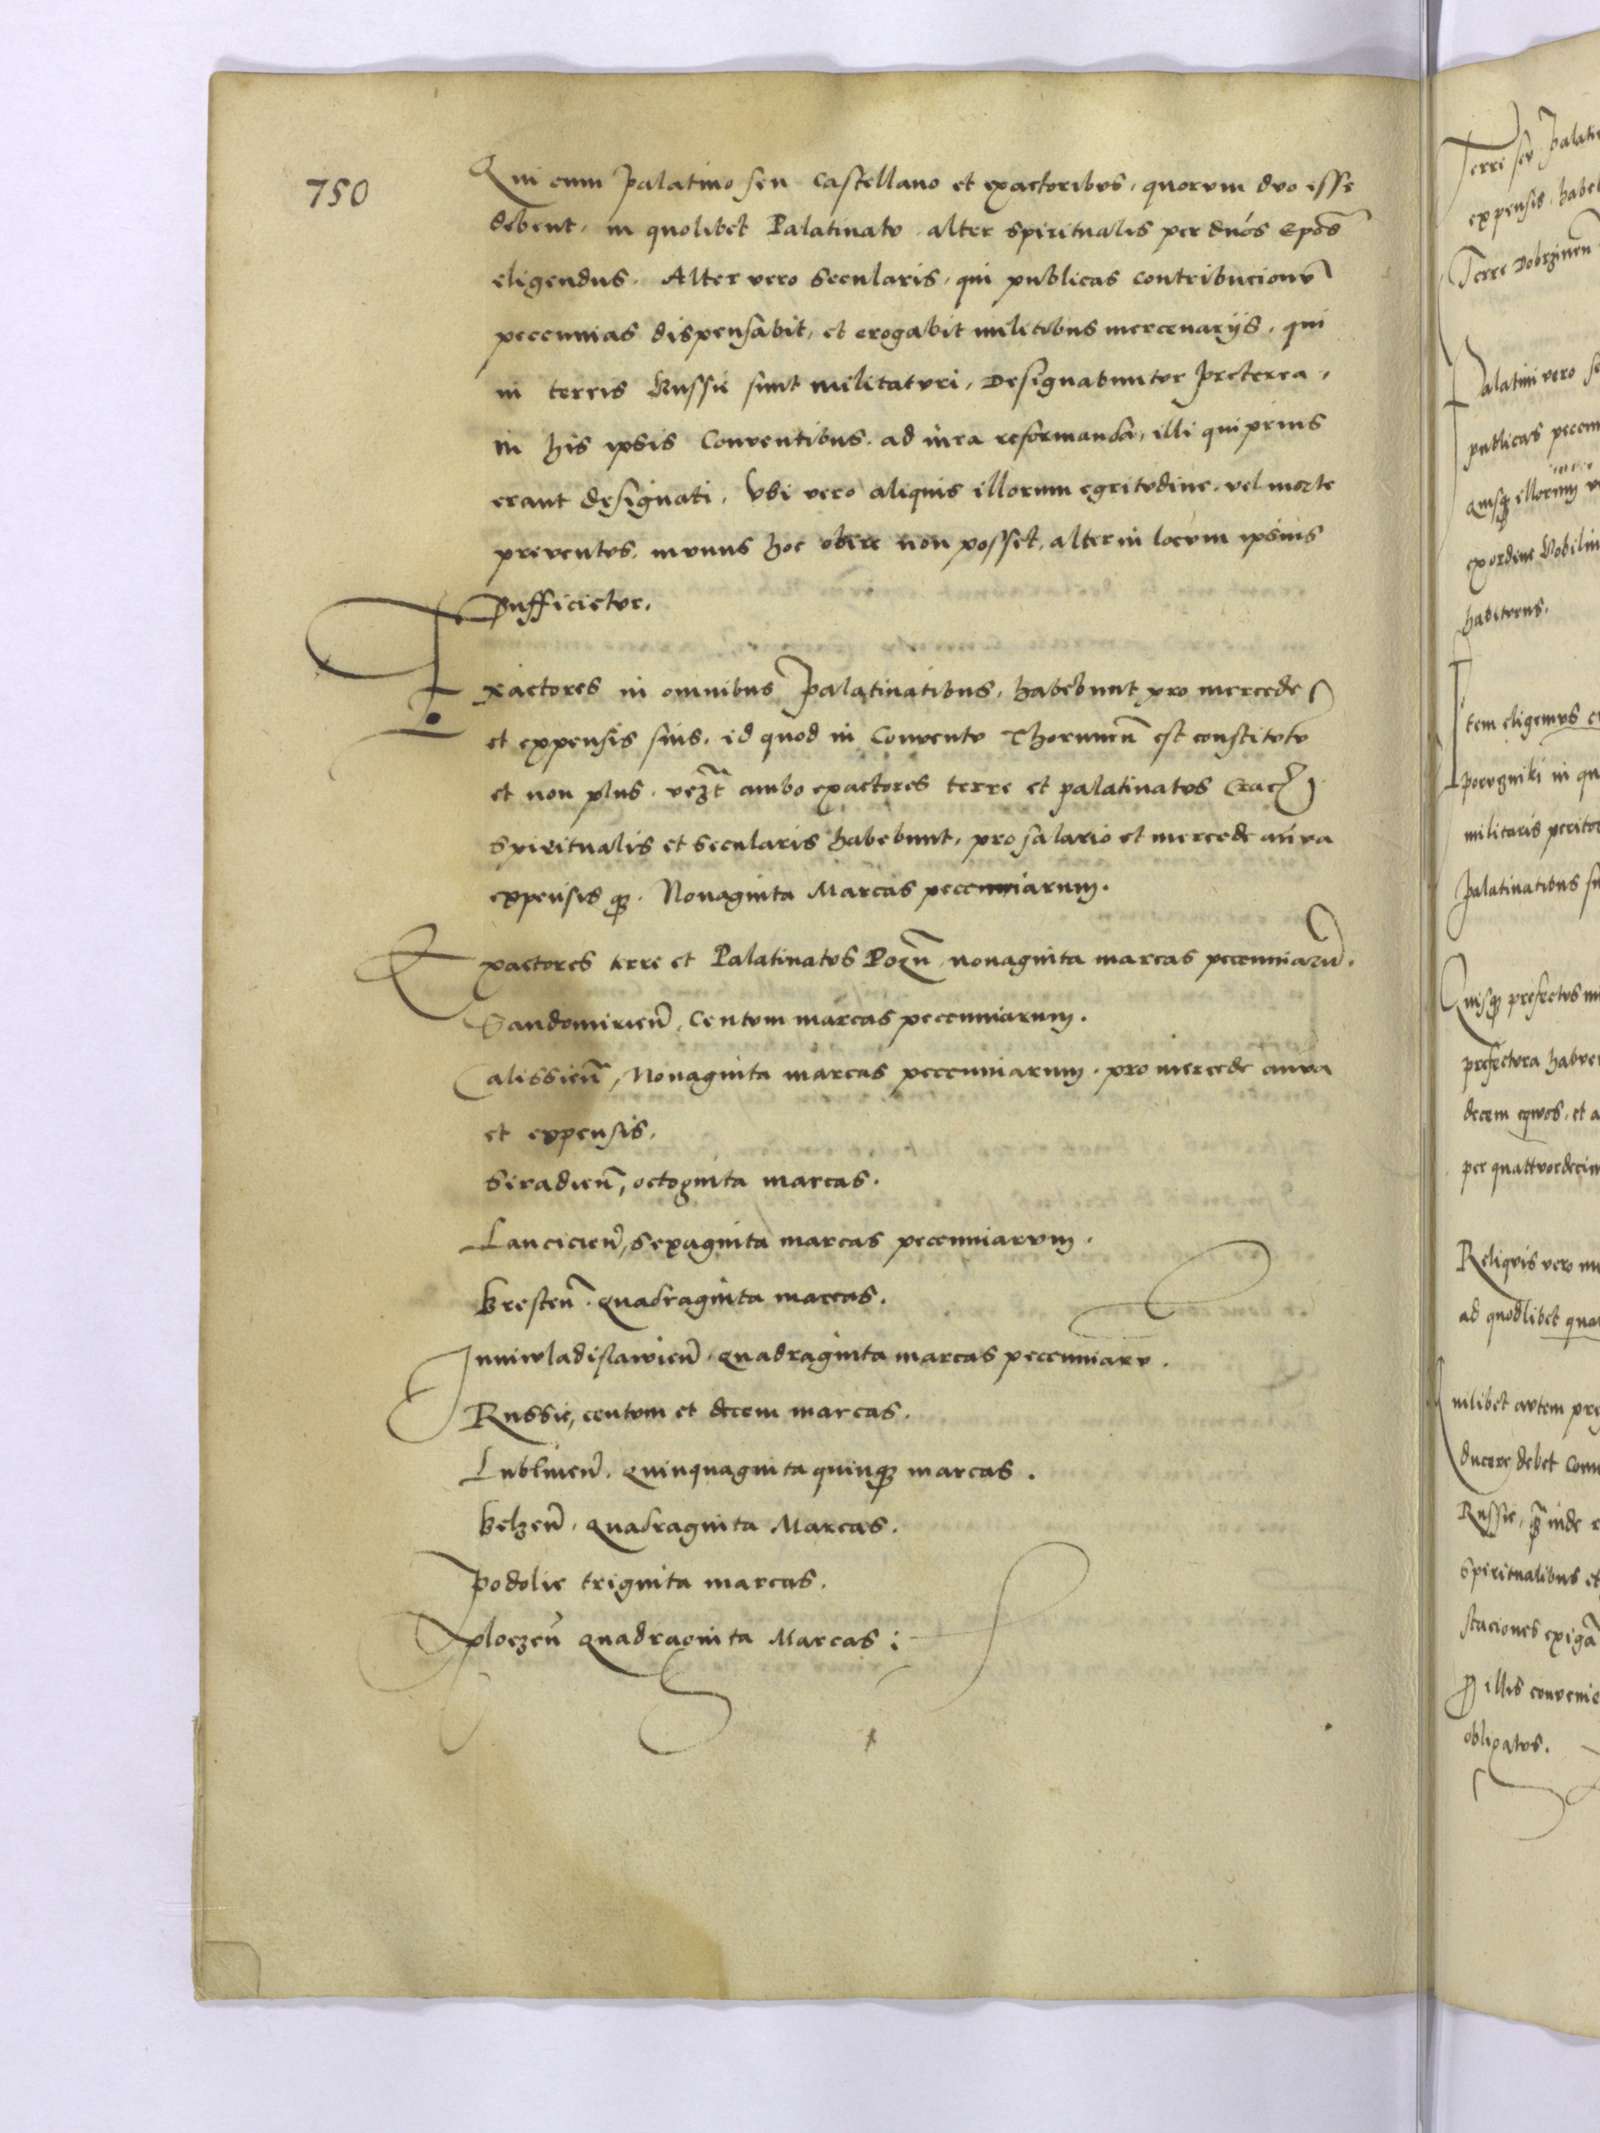 750
Qui cum Palatino seu Castellano et exactoribus, quorum duo esse
debent, in quolibet Palatinatu alter spiritualis per dnos Epos
eligendus. Alter vero secularis, qui publicas contribucionu
peccunias dispensabit, et erogabit militibus mercenariis, qui
in terris Russie sunt militaturi, Designabuntur preterea,
in his ipsis Conventibus ad iura reformanda, illi qui prius
erant designati. Ubi vero aliquis illorum egritudine vel morte
preventus, munus hoc obire non posset, alter in locum ipsius
Sufficietur.
Exactores in omnibus Palatinatibus, habebunt pro mercede
et expensis suis, id quod in Conventu Thorunien est constitutu
et non plus. vezt ambo exactores terre et palatinatus Crac
spiritualis et secularis habebunt, pro salario et mercede annua
expensis q. Nonaginta Marcas pecenniarum.
Exactores terre et Palatinatus Pozn nonaginta marcas pecenniaru.
Sandomirien, Centum marcas pecenniarum.
Calissien, Nonaginta marcas pecenniarum. pro mercede annua
et expensis.
Siradien, octoginta marcas.
Lancicien, sexaginta marcas pecenniarum.
Bresten. quadraginta marcas.
Iuniwladislawien. quadraginta marcas pecenniaru.
Russie, centum et decem marcas.
Lublinen. quinquaginta quinq marcas.
Belzen. quadraginta Marcas.
Podolie triginta marcas.
Ploczen quadraginta Marcas
Terre seu Palati
expensis. habe
Terre Dobrzinen
Palatini vero se
publicas pecen
quisq illorum
ex ordine Nobiliu
habiturus.
Item eligemus
poruczniki in qu
militaris perito
Palatinatibus su
Quisq prefectus mi
prefectura habue
decem equos, et a
per quattuordecim
Reliquis vero mi
ad quodlibet quar
Cuilibet autem pre
ducere debet
Russie, inde
spiritualibus et
staciones exiga
illis convenie
obligatus.